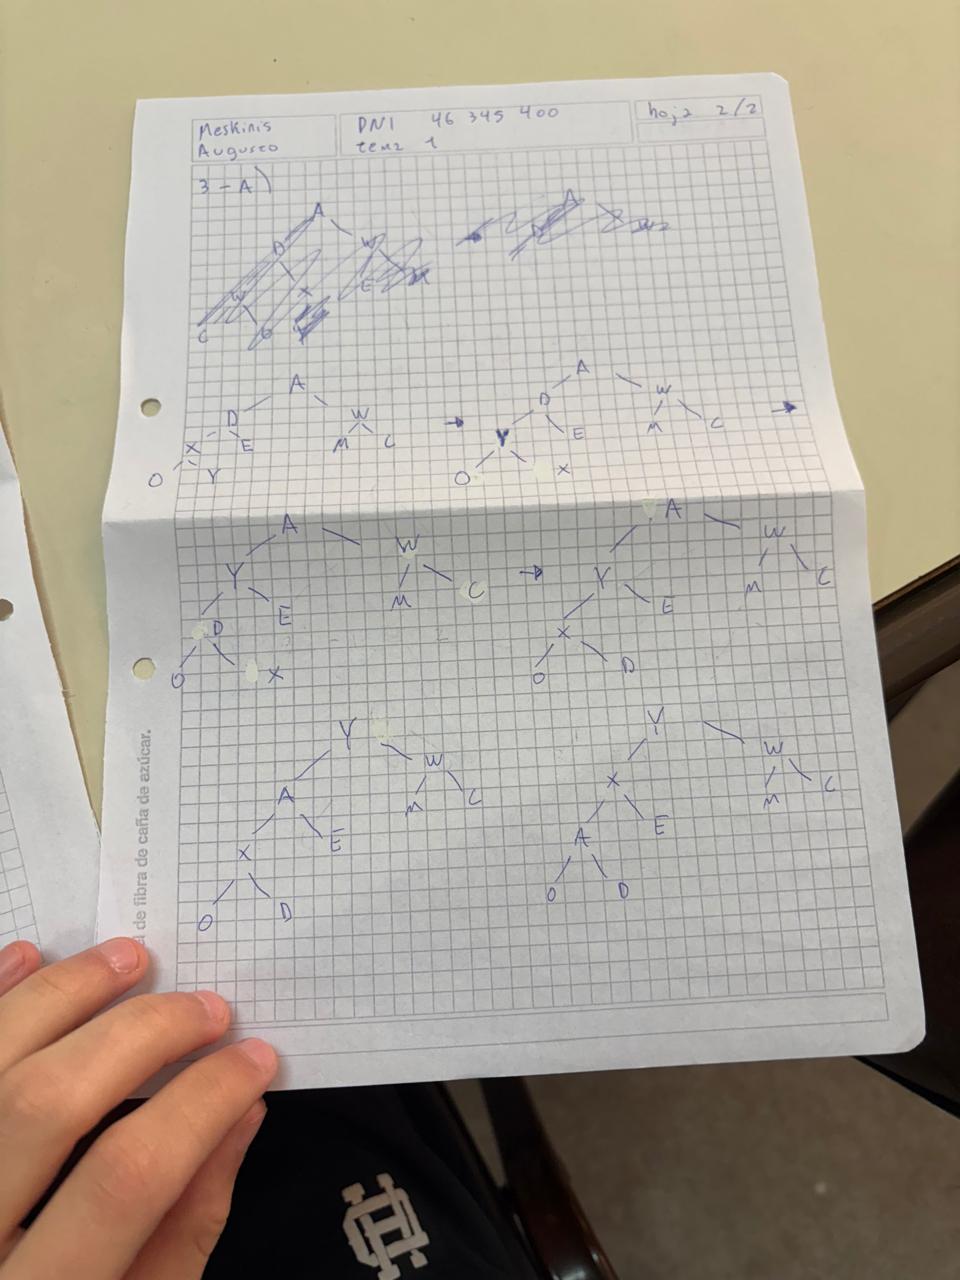 Meskinis
Augusto
DNI 46 345 400
tema 1
hoja 2/2
3 - A)
A
D W
X E
C
A
D W
X E M C
O Y
A
D W
Y E M C
O X
A
Y W
E M C
D
O X
A
Y W
E M C
X
O D
Y
A W
X E M C
O D
Y
X W
A E M C
O D
l de fibra de caña de azúcar.